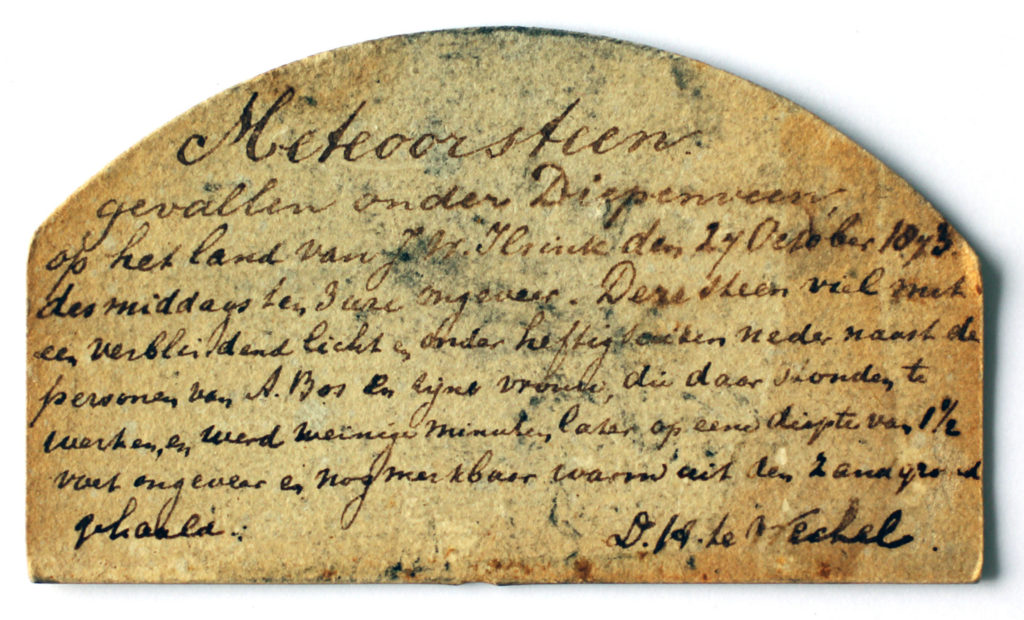 Meteoorsteen.
gevallen onder Diepenveen,
op het land van J. W. Ilsink den 27 October 1873
des middags ten 3 ure ongeveer. Deze steen viel met
een verblindend licht en onder heftig loeien neder naast de
personen van A. Bos en zijne vrouw, die daar stonden te
werken, en werd weinige minuten later op eene diepte van 1½
voet ongeveer en nog merkbaar warm uit den zandgrond
gehaald.
D. H. te Wechel.